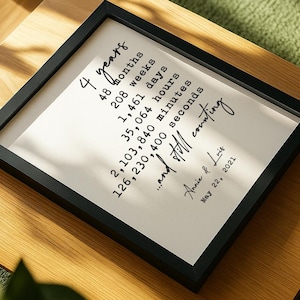 4 years
48 months
208 weeks
1,461 days
35,064 hours
2,103,840 minutes
126,230,400 seconds
...and still counting
Annie & Luis
May 22, 2021